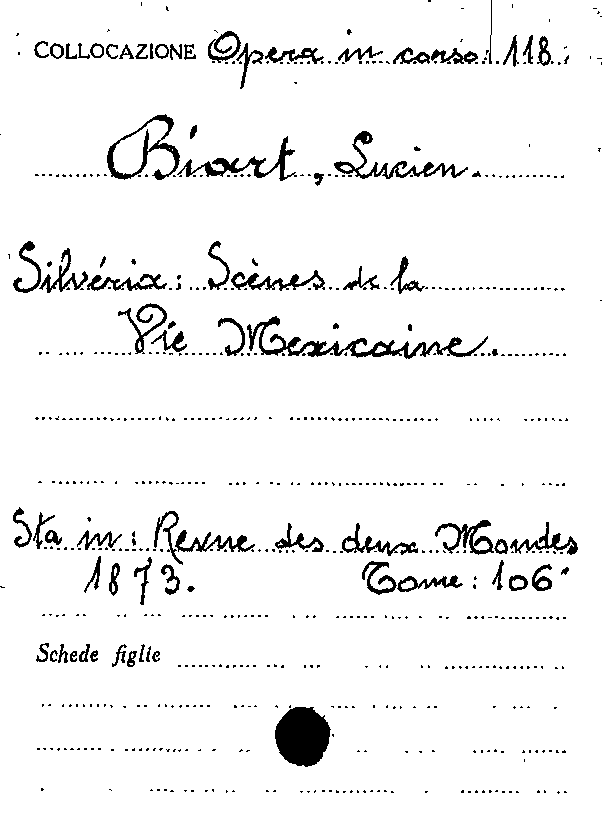 COLLOCAZIONE Opera in corso 118.
Biart, Lucien.
Silvéria: Scènes de la
Vie Mexicaine.
Sta in: Revue des deux Mondes
1873. Tome: 106°
Schede figlie